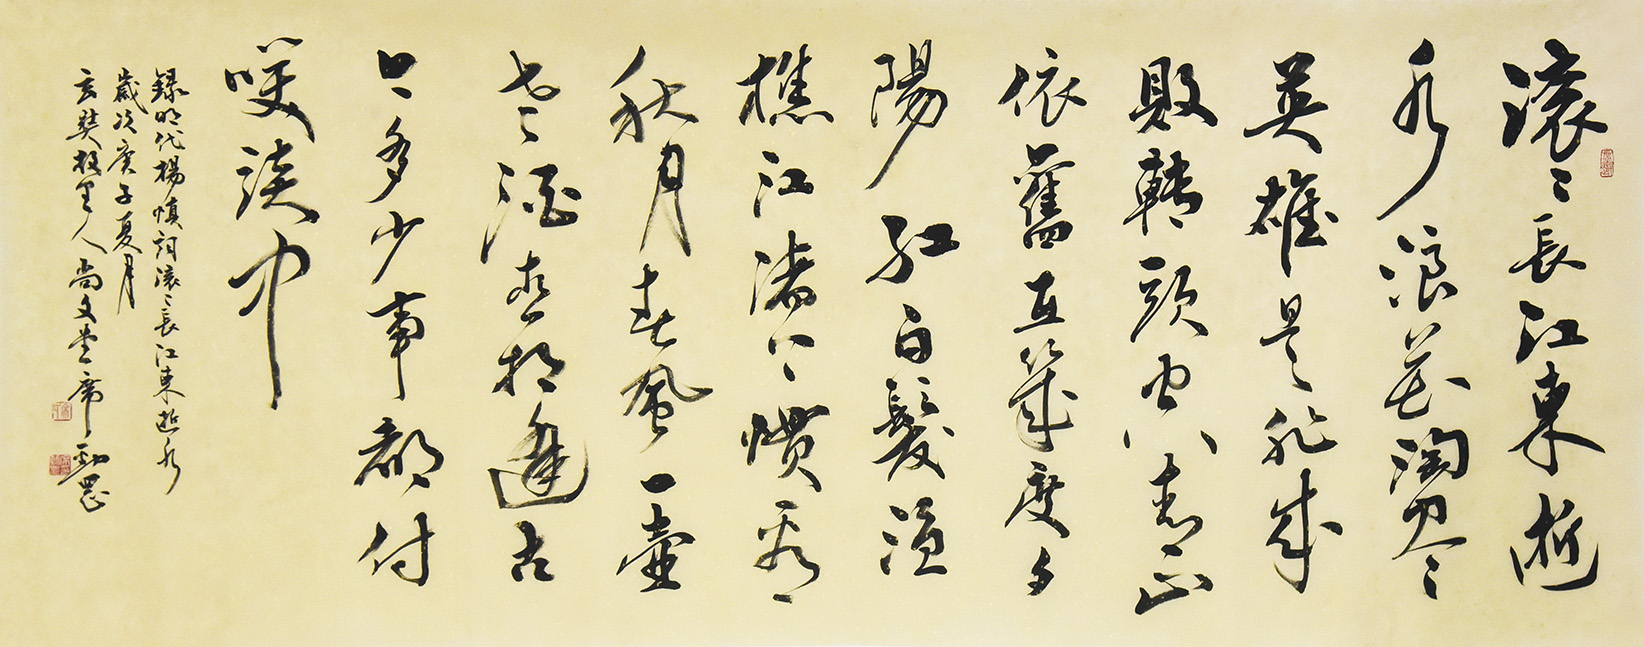 滚〻長江東逝
水浪花淘尽
英雄是非成
敗轉頭空青山
依舊在幾度夕
陽紅白髮漁
樵江渚上慣看
秋月春風一壺
老酒喜相逢古
今多少事都付
咲談中
録明代楊慎詞滚〻長江東逝水
歲次庚子夏月
玄奘故里人尚文堂席勁